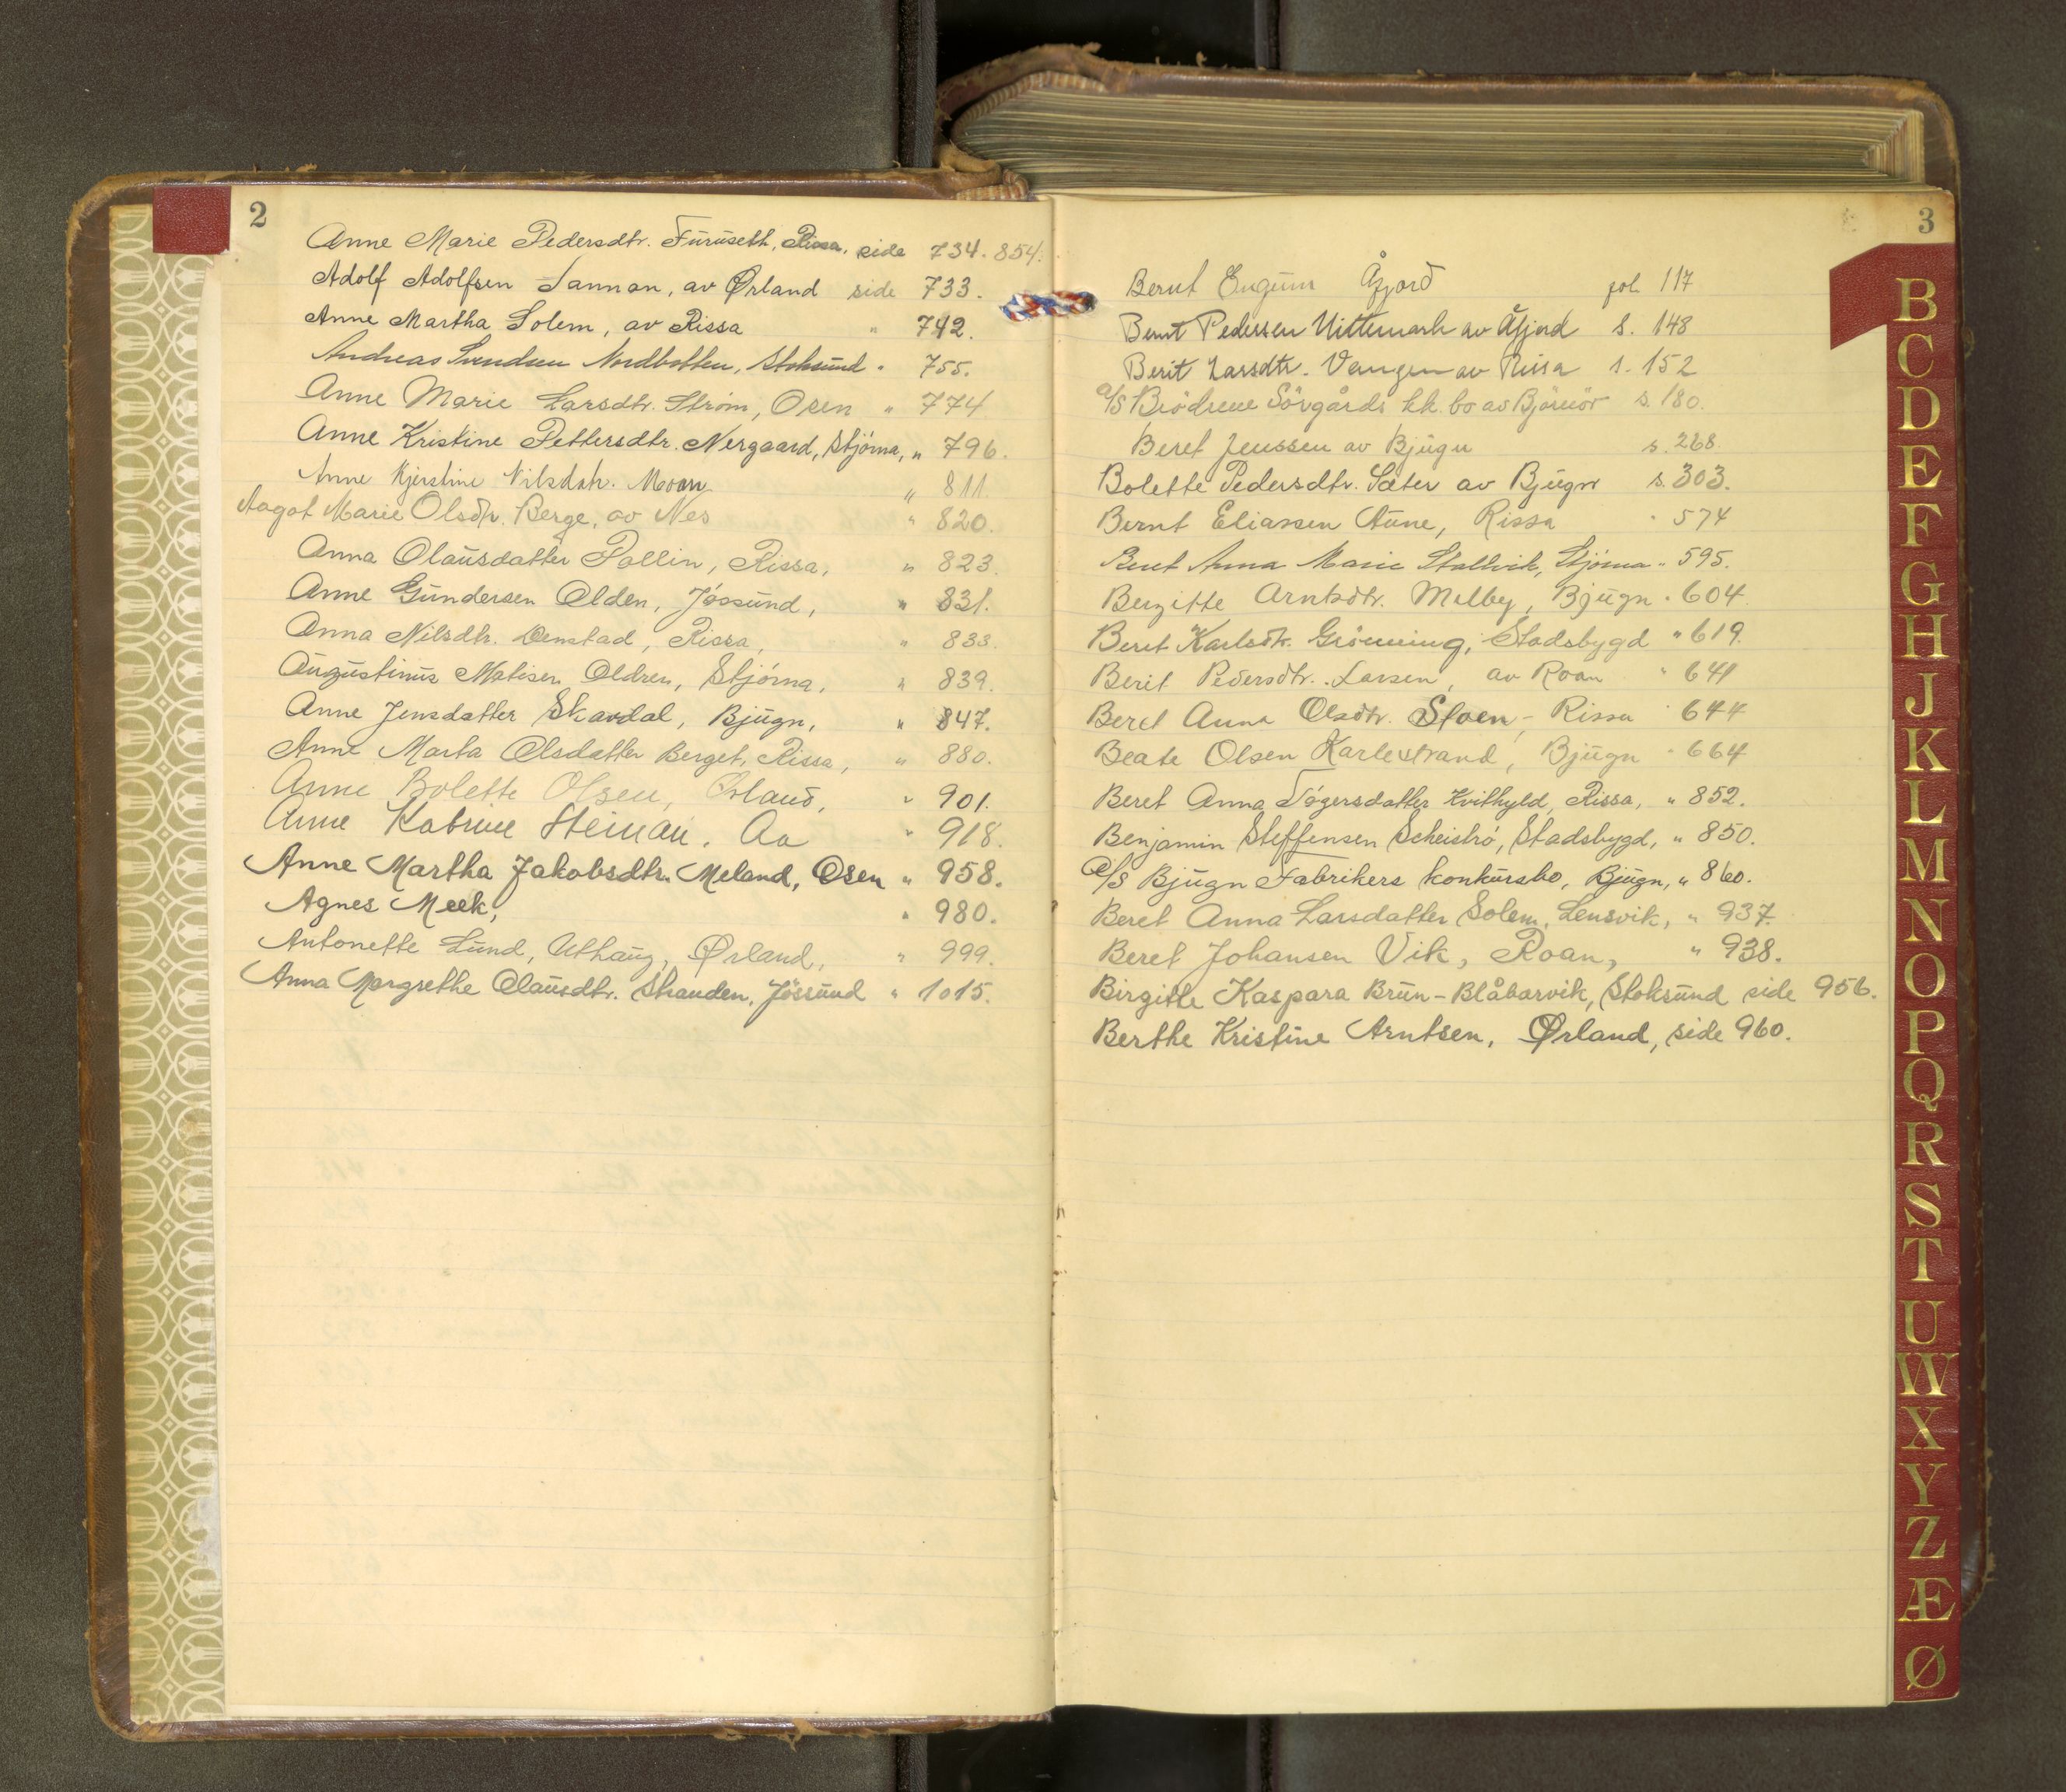 2
Anne Marie Pedersdtr. Furuseth, Rissa, side 734. 854.
Adolf Adolfsen Tannan, av Ørland side 733.
Anne Martha Solem, av Rissa " 742.
Andreas Svendsen Nordbotten, Stoksund " 755.
Anne Marie Larsdtr. Strøm, Osen " 774
Anne Kristine Pettersdtr. Nergaard, Stjørna, " 796.
Anne Kjerstine Nilsdatr. Moan " 811.
Aagot Marie Olsdtr. Berge, av Nes " 820.
Anna Olausdatter Pallin, Rissa, " 823.
Anne Gundersen Olden, Jøssund, " 831.
Anna Nilsdtr. Denstad, Rissa, " 833.
Augustinus Matisen Oldren, Stjørna, " 839.
Anne Jensdatter Skavdal, Bjugn, " 847.
Anne Marta Olsdatter Berget, Rissa, " 880.
Anne Bolette Olsen, Ørland, " 901.
Anne Katrine Steinan, Aa " 918.
Anne Martha Jakobsdtr. Meland, Osen " 958.
Agnes Meek, " 980.
Antonette Lund, Uthaug, Ørland, " 999.
Anna Margrethe Olausdtr. Stranden, Jössund " 1015.
3
Bernt Engum Åfjord fol. 117
Bernt Pedersen Hittemark av Åfjord s. 148
Berit Larsdtr. Vangen av Rissa s. 152
a/s Brödrene Sövgårds kk. bo av Björnör s. 180.
Beret Jenssen av Bjugn s. 268.
Bolette Pedersdtr. Sæter av Bjugn s. 303.
Bernt Eliassen Aune, Rissa " 574
Beret Anna Marie Stallvik, Stjørna " 595.
Bergitte Arntsdtr. Melby, Bjugn " 604.
Beret Karlsdtr. Grönning, Stadsbygd " 619.
Berit Pedersdtr. Larsen, av Roan " 641
Beret Anna Olsdtr. Sloen, Rissa " 644
Beate Olsen Karlestrand, Bjugn " 664
Beret Anna Tøgersdatter Kvithyld, Rissa, " 852.
Benjamin Steffensen Scheiströ, Stadsbygd, " 850.
a/s Bjugn Fabrikers konkursbo, Bjugn, " 860.
Beret Anna Larsdatter Solem, Lensvik, " 937.
Beret Johansen Vik, Roan, " 938.
Birgitte Kaspara Brun-Blåbarvik, Stoksund side 956.
Berthe Kristine Arntsen, Ørland, side 960.
B
C
D
E
F
G
H
J
K
L
M
N
O
P
Q
R
S
T
U
W
X
Y
Z
Æ
Ø